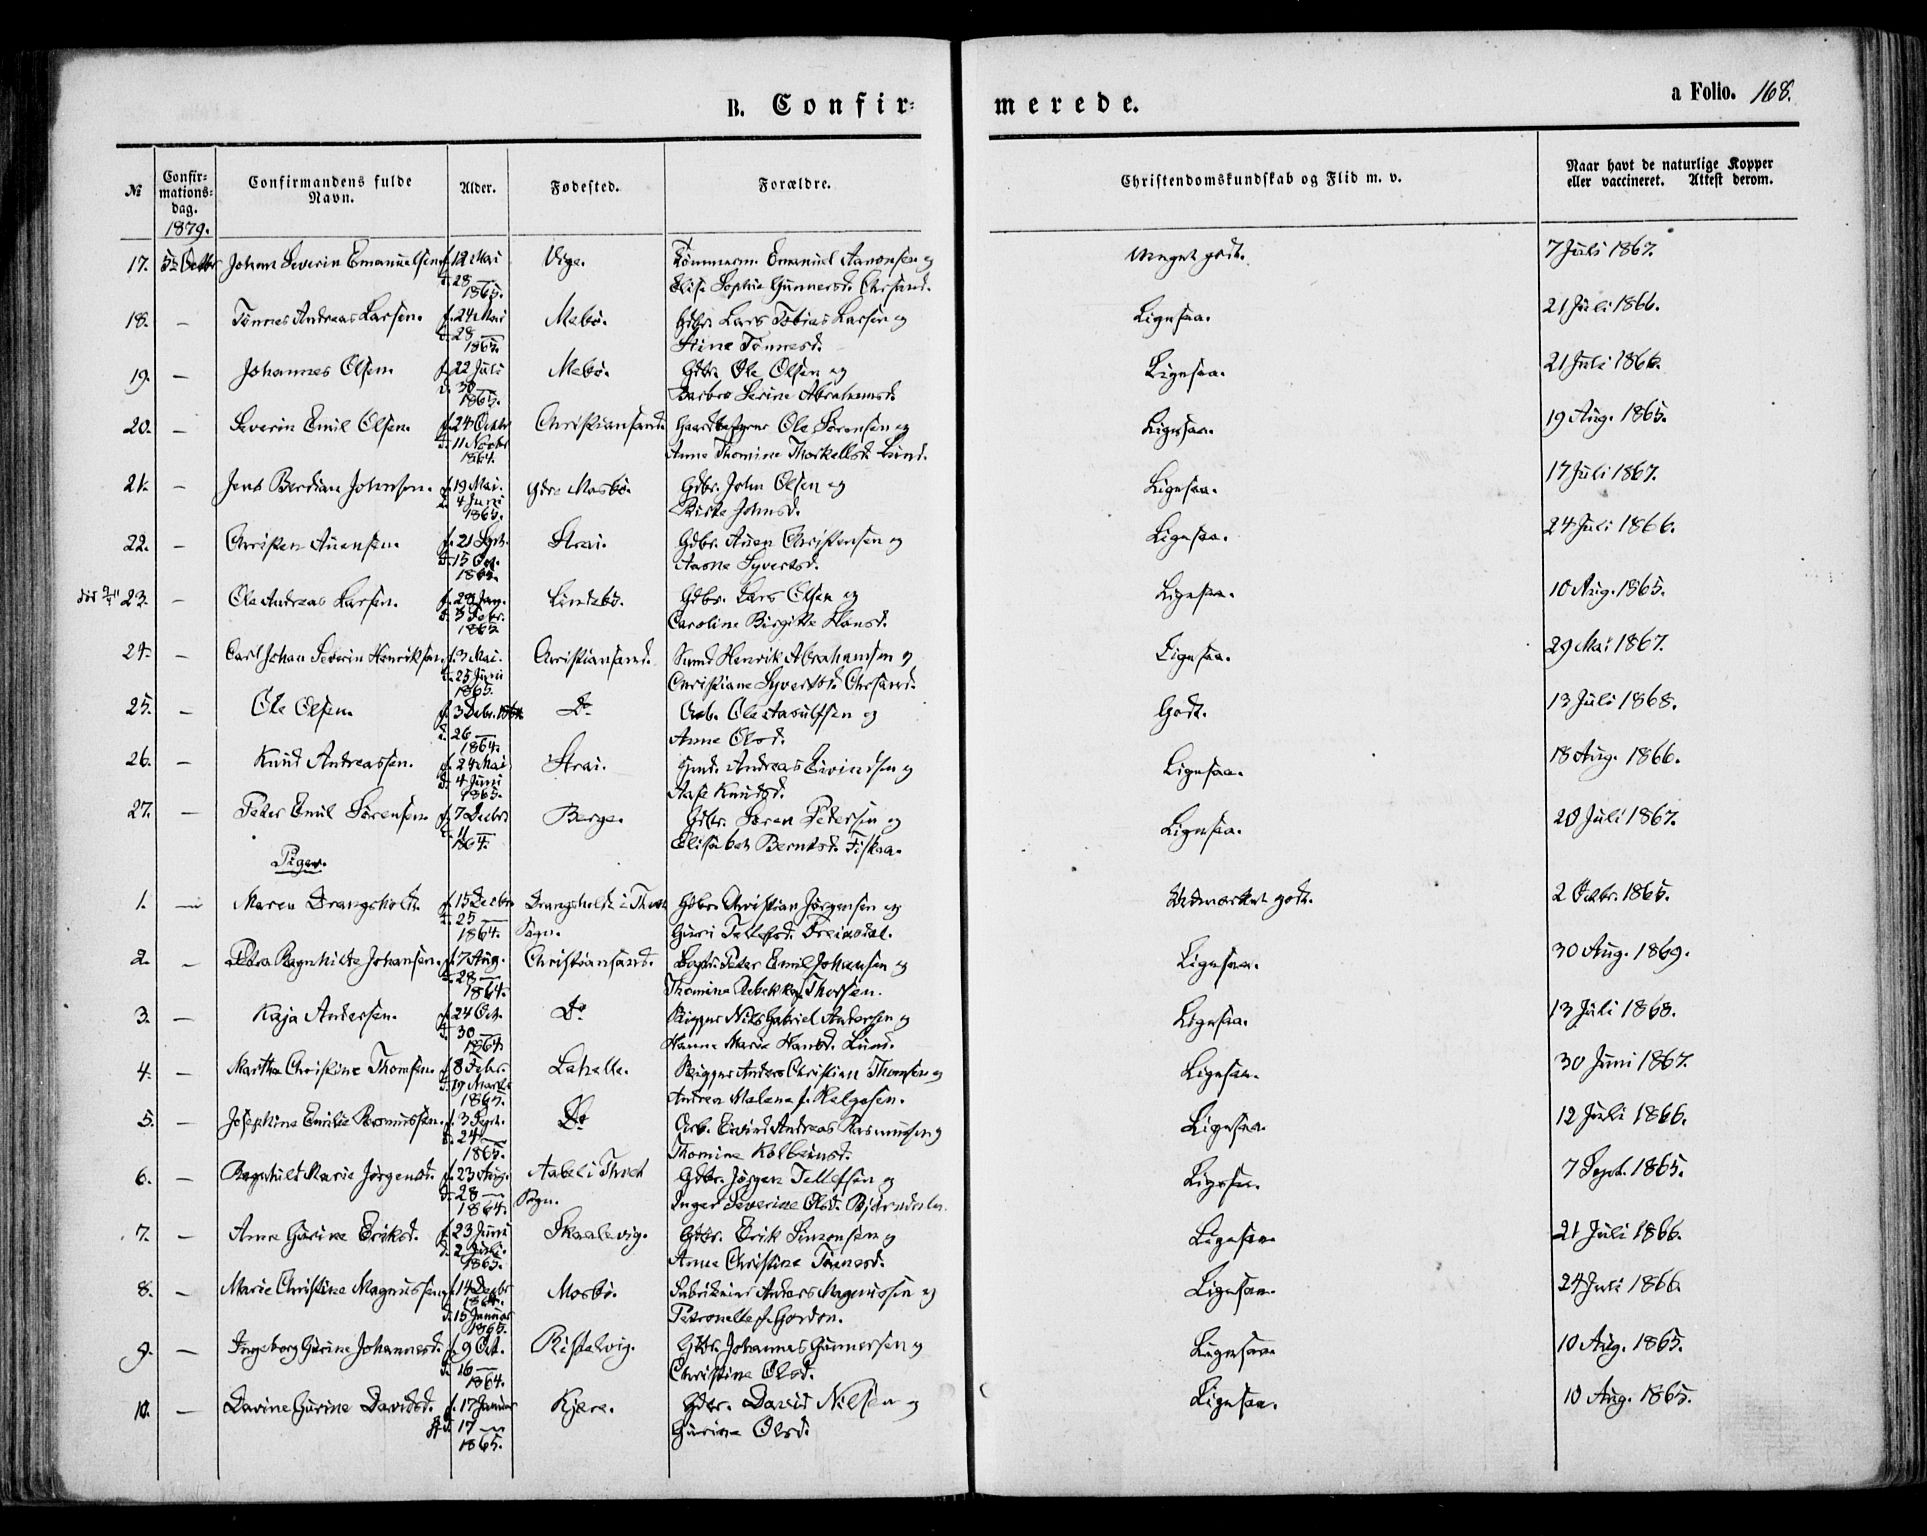 B. Confir-
merede.
a Folio. 168.
No
Confir-
mations-
dag.
1879.
Confirmandens fulde
Navn.
Alder.
Fødested.
Forældre.
Christendomskundskab og Flid m. v.
Naar havt de naturlige Kopper
eller vaccineret. Attest derom.
17. 5te Octbr Johan Severin Emanuelsen f. 12 Mai Vige. Tømmerm. Emanuel Aanonsen og Meget godt. 7 Juli 1867.
d. 28 — 1865. Elise Sophie Gunnersd. Chrsand.
18. — Tønnes Andreas Larsen. f. 24 Mai Mebø. Gdbr. Lars Tobias Larsen og Ligesaa. 21 Juli 1866.
d. 28 — 1865. Stine Tønnesd.
19. — Johannes Olsen. f. 22 Juli Mebø. Gdbr. Ole Olsen og Ligesaa. 21 Juli 1866.
d. 30 — 1865. Barbro Serine Abrahamsd.
20. — Severin Emil Olsen. f. 24 Octbr Christiansand. Ole Sørensen og Ligesaa. 19 Aug. 1865.
d. 11 Novbr 1864. Anne Thomine Thorkellsd. Lund.
21. — Jens Berdian Johnsen. f. 19 Mai. Ydre Mosbø. Gdbr. John Olsen og Ligesaa. 17 Juli 1867.
d. 4 Juni 1865. Birte Johnsd.
22. — Christen Auensen. f. 21 Sept. Strai. Gdbr. Auen Christensen og Ligesaa. 24 Juli 1866.
d. 15 Oct. 1865. Aasne Syvertsd.
23. — Ole Andreas Larsen. f. 28 Jan. Lindebø. Gdbr. Lars Olsen og Ligesaa. 10 Aug. 1865.
d. 5 Febr. 1865 Caroline Birgitte Hansd.
24. — Carl Johan Severin Henriksen f. 3 Mai. Christiansand. Henrik Abrahamsen og Ligesaa. 29 Mai 1867.
d. 25 Juni 1865. Christiane Syvertsd. Chrsand.
25. — Ole Olsen. f. 3 Debr. Do Arb. Ole Aasulfsen og Godt. 13 Juli 1868.
d. 26 — 1864. Anne Olsd.
26. — Knud Andreassen. f. 24 Mai Strai. Andreas Eivindsen og Ligesaa. 18 Aug. 1866.
d. 4 Juni 1865. Aase Knudsd.
27. — Peter Emil Sørensen. f. 7 Decbr Berge. Gdbr. Søren Petersen og Ligesaa. 20 Juli 1867.
d. 11 — 1864. Elisabet Berntsd. Fiskaa.
Piger.
1. — Maren Drangsholt. f. 15 Decbr Drangsholt i Thvet Gdbr. Christian Jørgensen og Udmærket godt. 2 Octbr. 1865.
d. 25 — 1864. Sogn. Guri Tellefsd. Drangsholt.
2. — Petra Ragnhilde Johansen. f. 7 Aug. Christiansand. Peter Emil Johansen og Ligesaa. 30 Aug. 1869.
d. 28 — 1864. Thomine Rebekka f. Thorsen.
3. — Kaja Andersen. f. 24 Oct. Do Rigger Nils Gabriel Andersen og Ligesaa. 13 Juli 1868.
d. 30 — 1864. Hanne Marie Hansd. Lund.
4. — Martha Christine Thomsen. f. 8 Febr. Lahelle. Rigger Anders Christian Thomsen og Ligesaa. 30 Juni 1867.
d. 19 Marts 1865. Andrea Malena f. Helgesen.
5. — Josephine Emilie Rasmussen. f. 3 Sept. Do Arb. Eivind Andreas Rasmussen og Ligesaa. 12 Juli 1866.
d. 24 — 1865. Thomine Kolbeinsd.
6. — Ragnhild Marie Jørgensd. f. 23 Aug. Aabel i Thvet Gdbr. Jørgen Tellefsen og Ligesaa. 7 Sept. 1865.
d. 28 — 1864. Sogn. Inger Severine Olsd. Bjørndalen.
7. — Anne Gurine Eriksd. f. 23 Juni Skaalevig. Gdbr. Erik Simonsen og Ligesaa. 21 Juli 1866.
d. 2 Juli. 1865. Anne Christine Tønnesd.
8. — Marie Christine Magnussen f. 14 Decbr 1864. Mosbø. Anders Magnussen og Ligesaa. 24 Juli 1866.
d. 15 Januar 1865. Petronelle f. Gordon.
9. — Ingeborg Gurine Johannesd. f. 9 Oct. Ristelvig. Gdbr. Johannes Gunnersen og Ligesaa. 10 Aug. 1865.
d. 16 — 1864. Christine Olsd.
10. — Davine Gurine Davidsd. f. 17 Januar Kjere. Gdbr. David Nilsen og Ligesaa. 10 Aug. 1865.
d. 17 — 1865. Gurine Olsd.